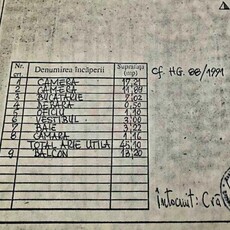 Nr. crt. Denumirea încăperii Suprafața (mp)
1 CAMERA 17,21
2 CAMERA 11,89
3 BUCATARIE 7,02
4 DEBARA 0,50
5 OFICIU 1,10
6 VESTIBUL 3,00
7 BAIE 3,22
8 CAMARA 1,16
TOTAL ARIE UTILA 45,10
9 BALCON 13,20
cf. HG. 88/1991
Întocmit: